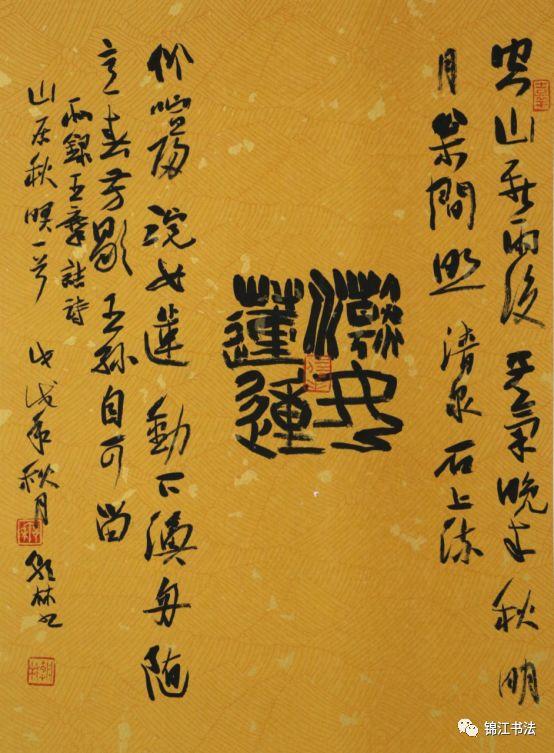 空山新雨後天氣晚来秋明
月松間照清泉石上流
竹喧歸浣女蓮動下漁舟随
意春芳歇王孫自可留
右錄王摩詰詩
山居秋暝一首戊戌年秋月林书
锦江书法